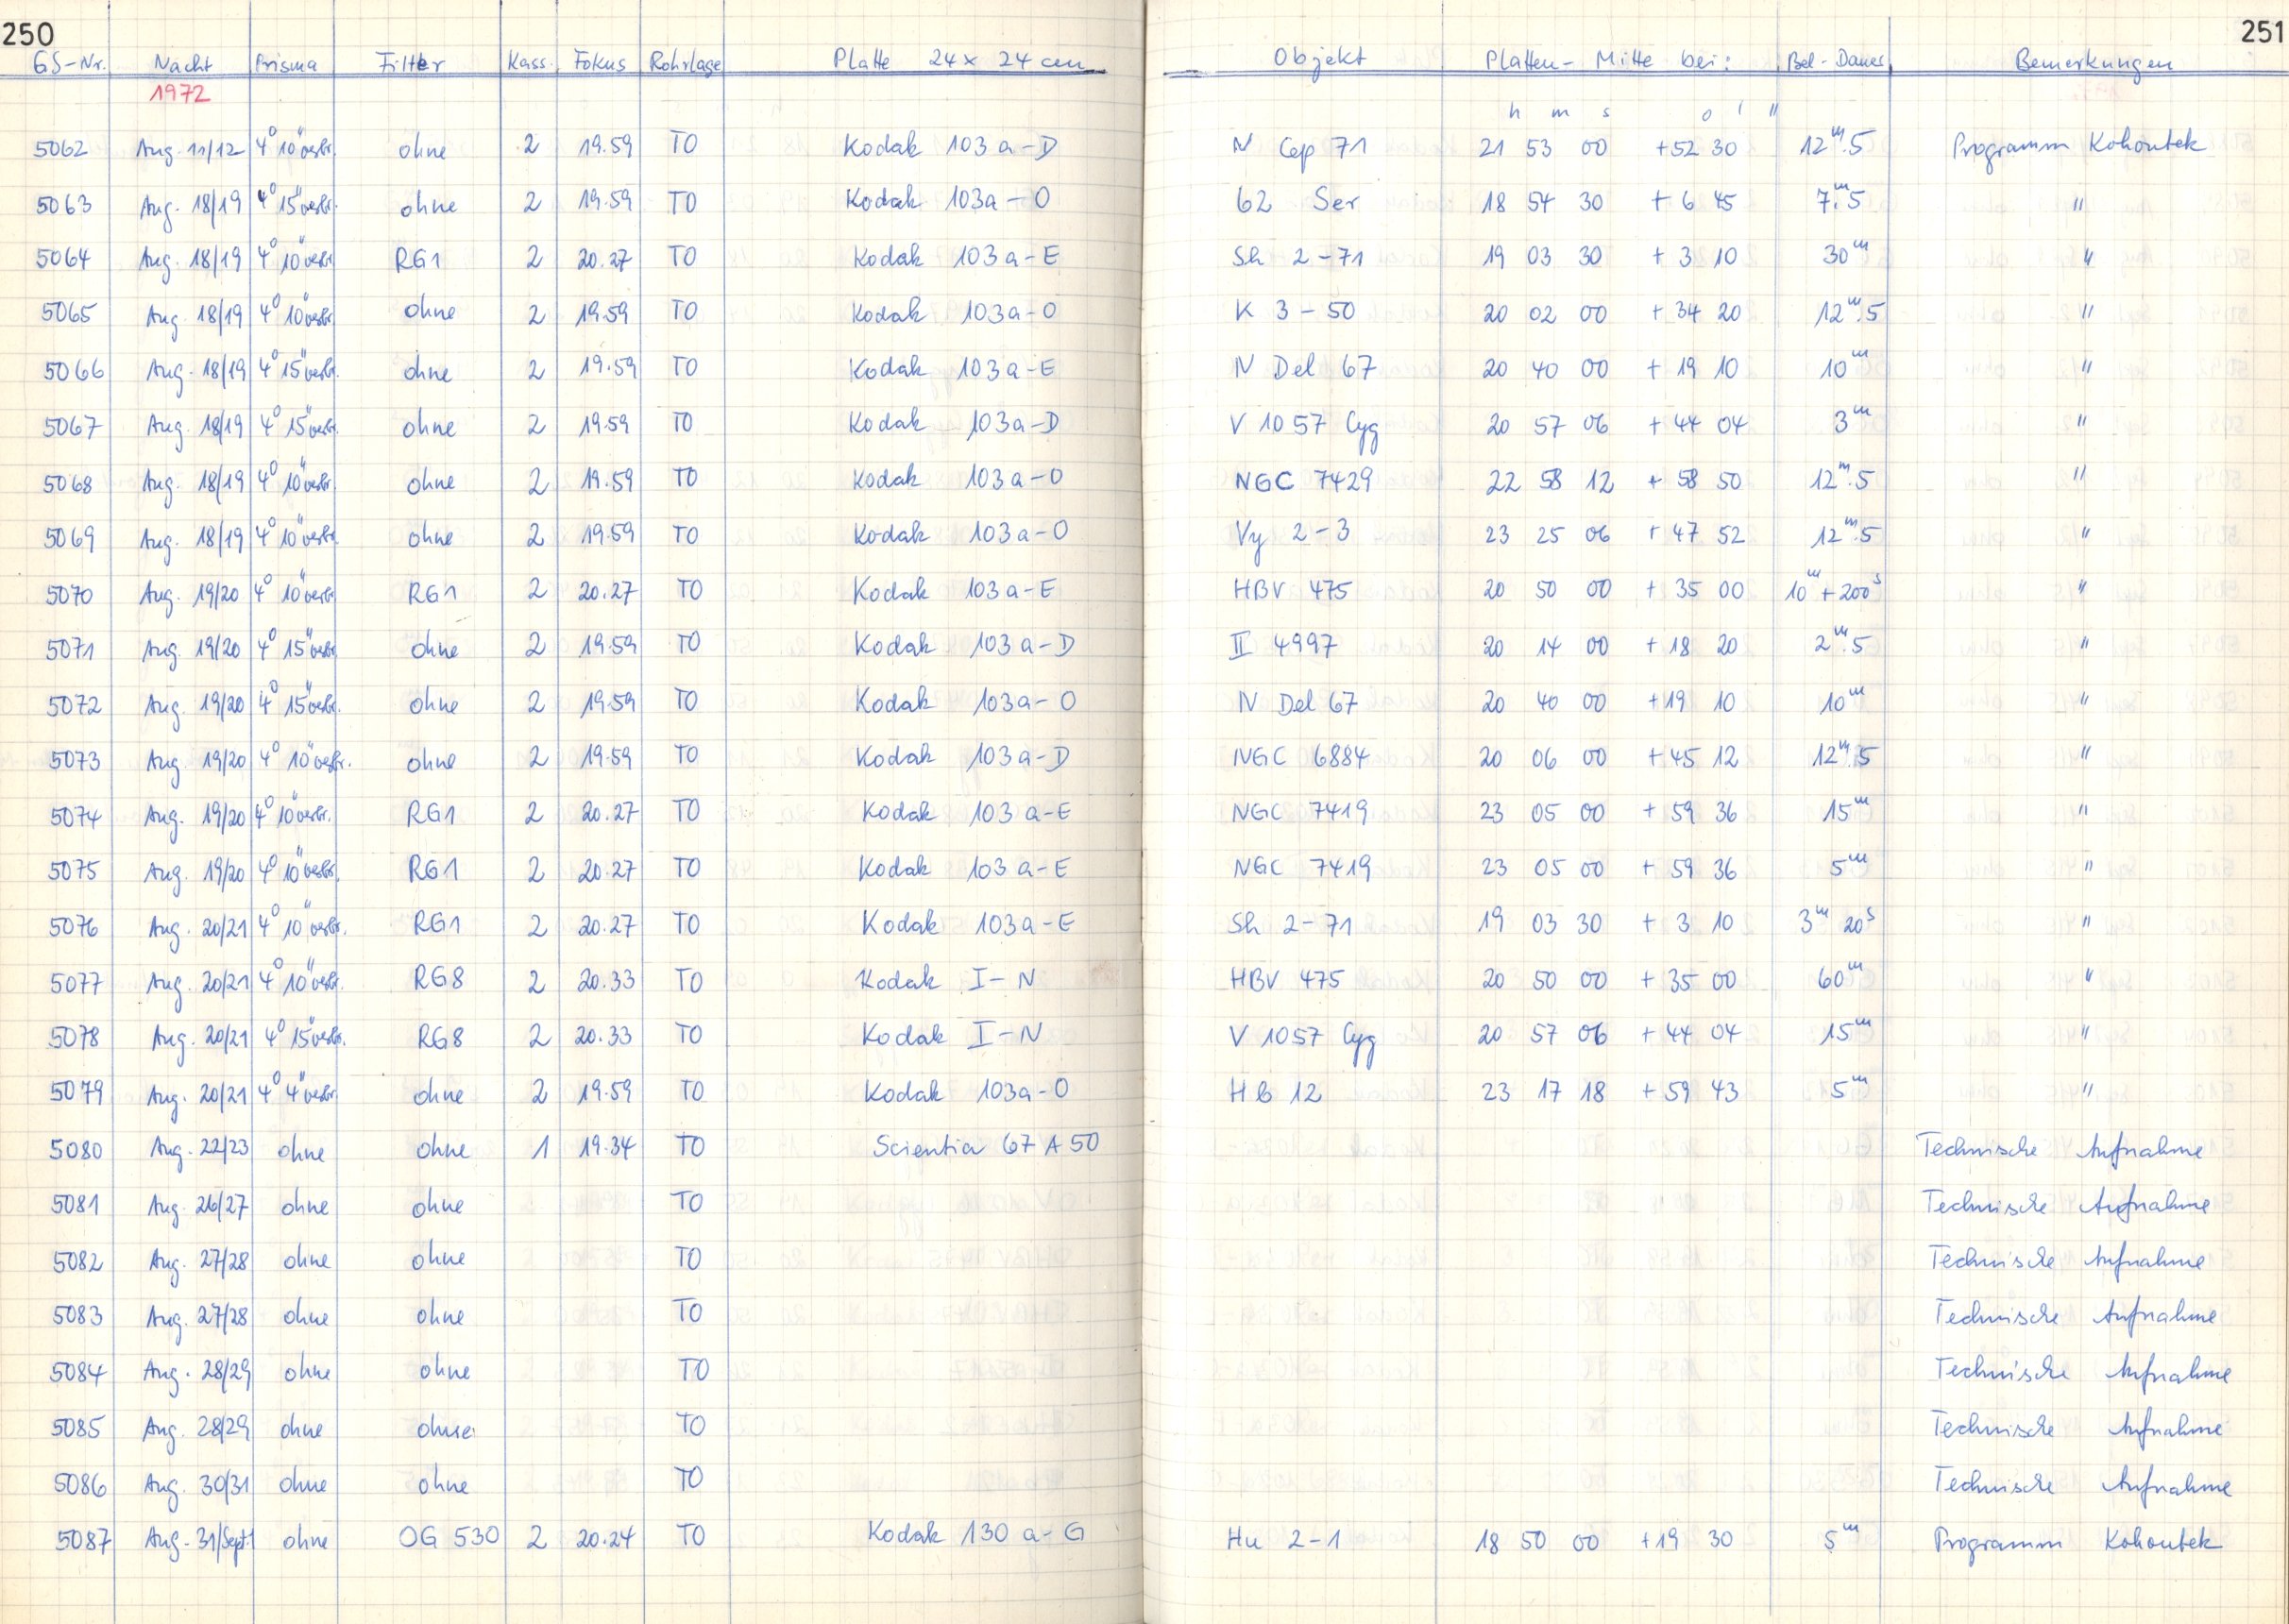 250 251
GS-Nr. Nacht Prisma Filter Kass. Fokus Rohrlage Platte 24 x 24 cm Objekt Platten-Mitte bei: Bel-Dauer Bemerkungen
1972
h m s ° ' "
5062 Aug. 11/12 4° 10" verbr. ohne 2 19.59 TO Kodak 103a-D N Cep 71 21 53 00 +52 30 12ᵐ.5 Programm Kohoutek
5063 Aug. 18/19 4° 15" verbr. ohne 2 19.59 TO Kodak 103a-O 62 Ser 18 54 30 + 6 45 7ᵐ.5 "
5064 Aug. 18/19 4° 10" verbr. RG1 2 20.27 TO Kodak 103a-E Sh 2-71 19 03 30 + 3 10 30ᵐ "
5065 Aug. 18/19 4° 10" verbr. ohne 2 19.59 TO Kodak 103a-O K 3-50 20 02 00 + 34 20 12ᵐ.5 "
5066 Aug. 18/19 4° 15" verbr. ohne 2 19.59 TO Kodak 103a-E N Del 67 20 40 00 + 19 10 10ᵐ "
5067 Aug. 18/19 4° 15" verbr. ohne 2 19.59 TO Kodak 103a-D V 1057 Cyg 20 57 06 + 44 04 3ᵐ "
5068 Aug. 18/19 4° 10" verbr. ohne 2 19.59 TO Kodak 103a-O NGC 7429 22 58 12 + 58 50 12ᵐ.5 "
5069 Aug. 18/19 4° 10" verbr. ohne 2 19.59 TO Kodak 103a-O Vy 2-3 23 25 06 + 47 52 12ᵐ.5 "
5070 Aug. 19/20 4° 10" verbr. RG1 2 20.27 TO Kodak 103a-E HBV 475 20 50 00 + 35 00 10ᵐ+200ˢ "
5071 Aug. 19/20 4° 15" verbr. ohne 2 19.59 TO Kodak 103a-D II 4997 20 14 00 + 18 20 2ᵐ.5 "
5072 Aug. 19/20 4° 15" verbr. ohne 2 19.59 TO Kodak 103a-O N Del 67 20 40 00 +19 10 10ᵐ "
5073 Aug. 19/20 4° 10" verbr. ohne 2 19.59 TO Kodak 103a-D NGC 6884 20 06 00 +45 12 12ᵐ.5 "
5074 Aug. 19/20 4° 10" verbr. RG1 2 20.27 TO Kodak 103a-E NGC 7419 23 05 00 + 59 36 15ᵐ "
5075 Aug. 19/20 4° 10" verbr. RG1 2 20.27 TO Kodak 103a-E NGC 7419 23 05 00 + 59 36 5ᵐ "
5076 Aug. 20/21 4° 10" verbr. RG1 2 20.27 TO Kodak 103a-E Sh 2-71 19 03 30 + 3 10 3ᵐ 20ˢ "
5077 Aug. 20/21 4° 10" verbr. RG8 2 20.33 TO Kodak I-N HBV 475 20 50 00 + 35 00 60ᵐ "
5078 Aug. 20/21 4° 15" verbr. RG8 2 20.33 TO Kodak I-N V 1057 Cyg 20 57 06 + 44 04 15ᵐ "
5079 Aug. 20/21 4° 4" verbr. ohne 2 19.59 TO Kodak 103a-O Hb 12 23 17 18 + 59 43 5ᵐ "
5080 Aug. 22/23 ohne ohne 1 19.34 TO Scientia 67 A 50 Technische Aufnahme
5081 Aug. 26/27 ohne ohne TO Technische Aufnahme
5082 Aug. 27/28 ohne ohne TO Technische Aufnahme
5083 Aug. 27/28 ohne ohne TO Technische Aufnahme
5084 Aug. 28/29 ohne ohne TO Technische Aufnahme
5085 Aug. 28/29 ohne ohne TO Technische Aufnahme
5086 Aug. 30/31 ohne ohne TO Technische Aufnahme
5087 Aug. 31/Sept.1 ohne OG 530 2 20.24 TO Kodak 130 a-G Hu 2-1 18 50 00 +19 30 5ᵐ Programm Kohoutek